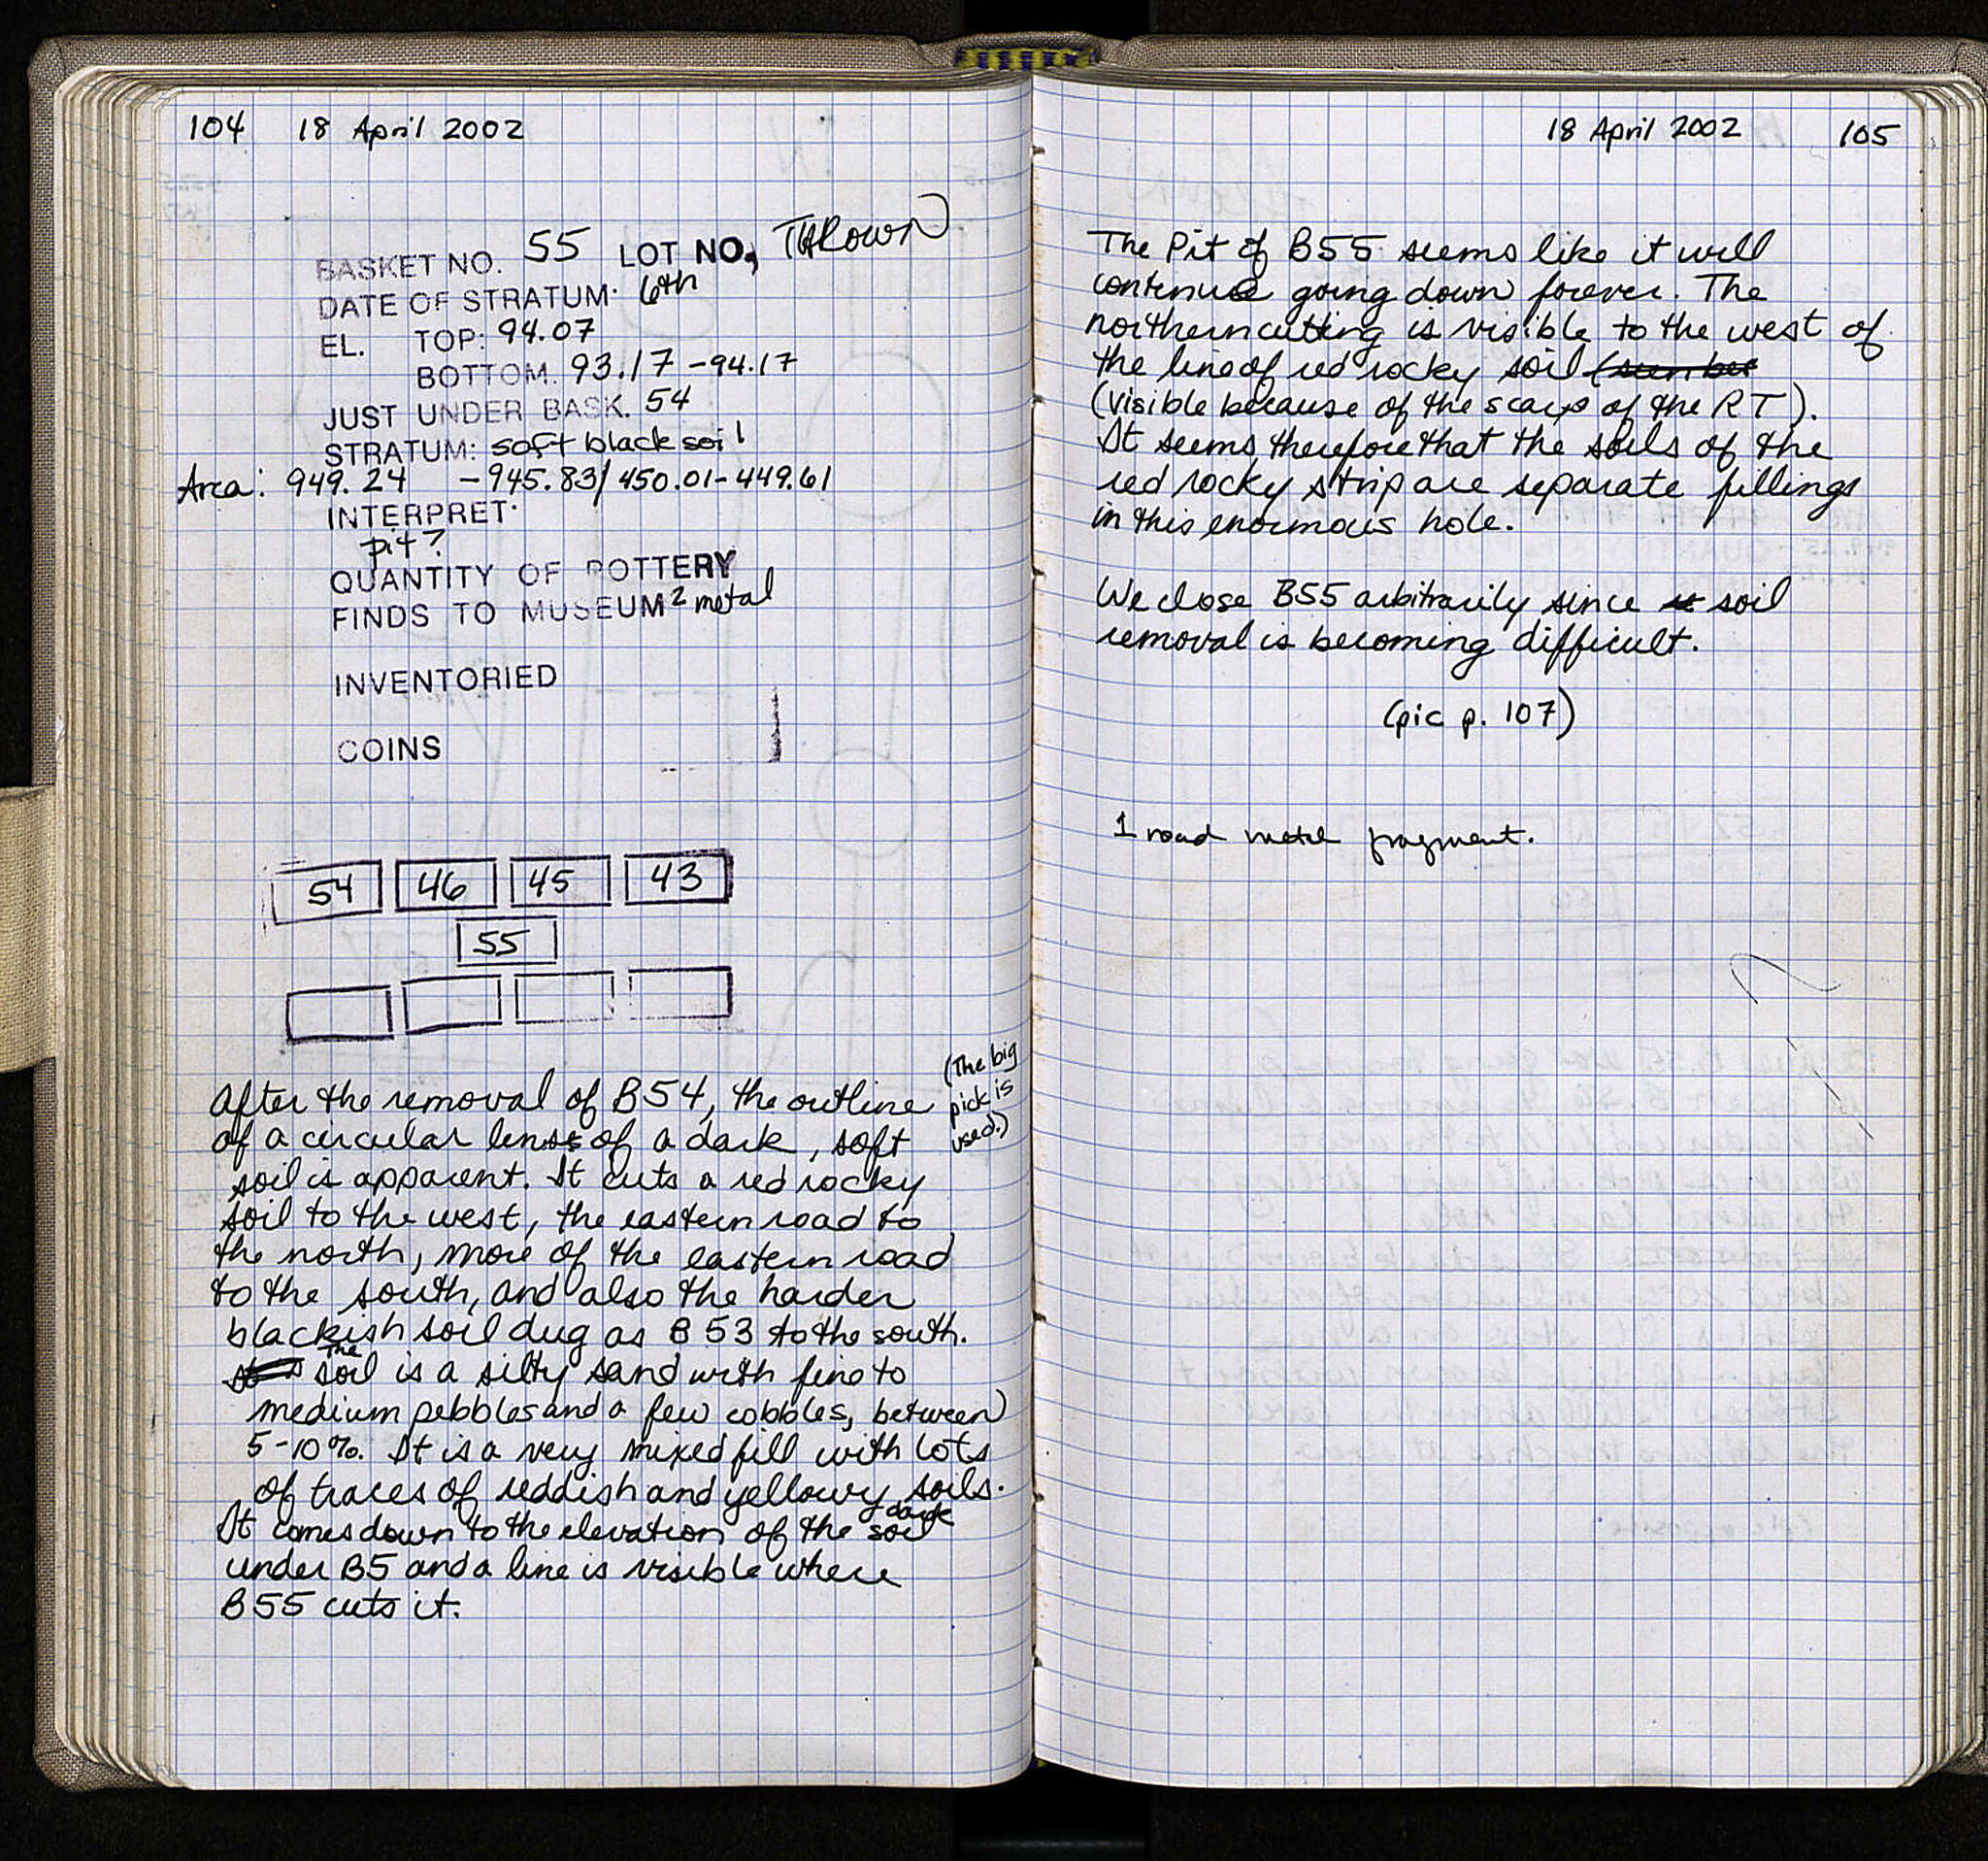 104 18 April 2002
BASKET NO. 55 LOT NO. THROWN
DATE OF STRATUM: 6th
EL. TOP: 94.07
BOTTOM. 93.17 - 94.17
JUST UNDER BASK. 54
STRATUM: soft black soil
Area: 949.24 - 945.83/450.01-449.61
INTERPRET.
pit?
QUANTITY OF POTTERY
FINDS TO MUSEUM 2 metal
INVENTORIED
COINS
54 46 45 43
55
(The big
pick is
used.)
After the removal of B54, the outline
of a circular lens of a dark, soft
soil is apparent. It cuts a red rocky
soil to the west, the eastern road to
the north, more of the eastern road
to the south, and also the harder
blackish soil dug as B53 to the south.
The soil is a silty sand with fine to
medium pebbles and a few cobbles, between
5-10%. It is a very mixed fill with lots
of traces of reddish and yellowy soils.
It comes down to the elevation of the dark soil
under B5 and a line is visible where
B55 cuts it.
18 April 2002 105
The Pit of B55 seems like it will
continue going down forever. The
northern cutting is visible to the west of
the line of red rocky soil
(visible because of the scarp of the RT).
It seems, therefore that the soils of the
red rocky strip are separate fillings
in this enormous hole.
We close B55 arbitrarily since soil
removal is becoming difficult.
(pic p. 107)
1 road metal fragment.